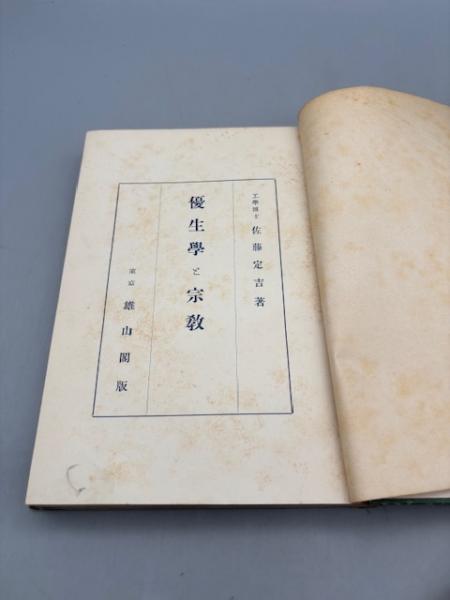 工學博士 佐藤定吉著
優生學と宗教
東京 雄山閣版